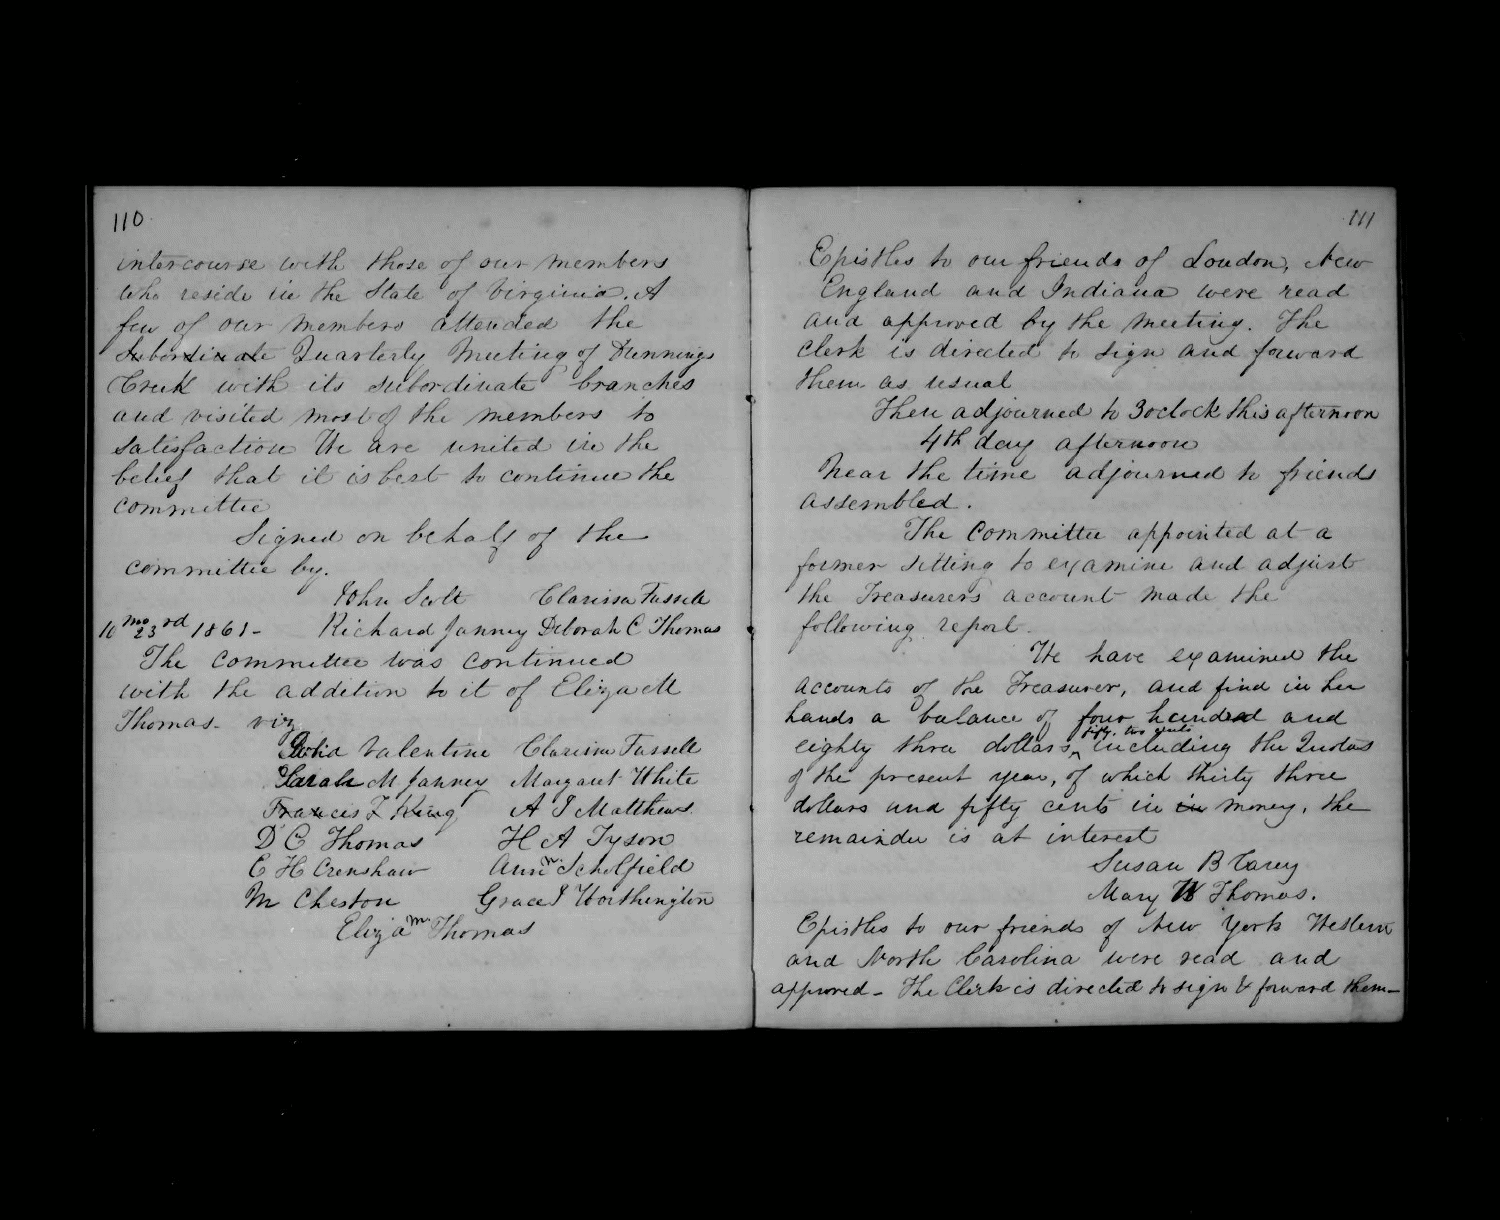 110
intercourse with those of our members
who reside in the State of Virginia. A
few of our members attended the
Subordinate Quarterly Meeting of Dunnings
Creek with its subordinate branches
and visited most of the members to
satisfaction We are united in the
belief that it is best to continue the
committee
Signed on behalf of the
committee by.
John Scott Clarissa Fussell
10mo 23rd 1861- Richard Janney Deborah C Thomas
The committee was continued
with the addition to it of Eliza M
Thomas- viz
Valentine Clarissa Fussell
Sarah M Janney Margaret White
Francis T King A J Matthews
D C Thomas H A Tyson
E H Crenshaw Ann Scholfield
M Cheston Grace Worthington
Eliza M Thomas
111
Epistles to our friends of London, New
England and Indiana were read
and approved by the meeting. The
Clerk is directed to sign and forward
them as usual
Then adjourned to 3 oclock this afternoon
4th day afternoon
Near the time adjourned to friends
assembled.
The Committee appointed at a
former sitting to examine and adjust
the Treasurers account made the
following report.
We have examined the
accounts of the Treasurer, and find in her
hands a balance of four hundred and
eighty three dollars fifty two cents including the Quotas
of the present year, of which thirty three
dollars and fifty cents in in money, the
remainder is at interest
Susan B Carey
Mary W Thomas.
Epistles to our friends of New York Western
and North Carolina were read and
approved- The Clerk is directed to sign & forward them-